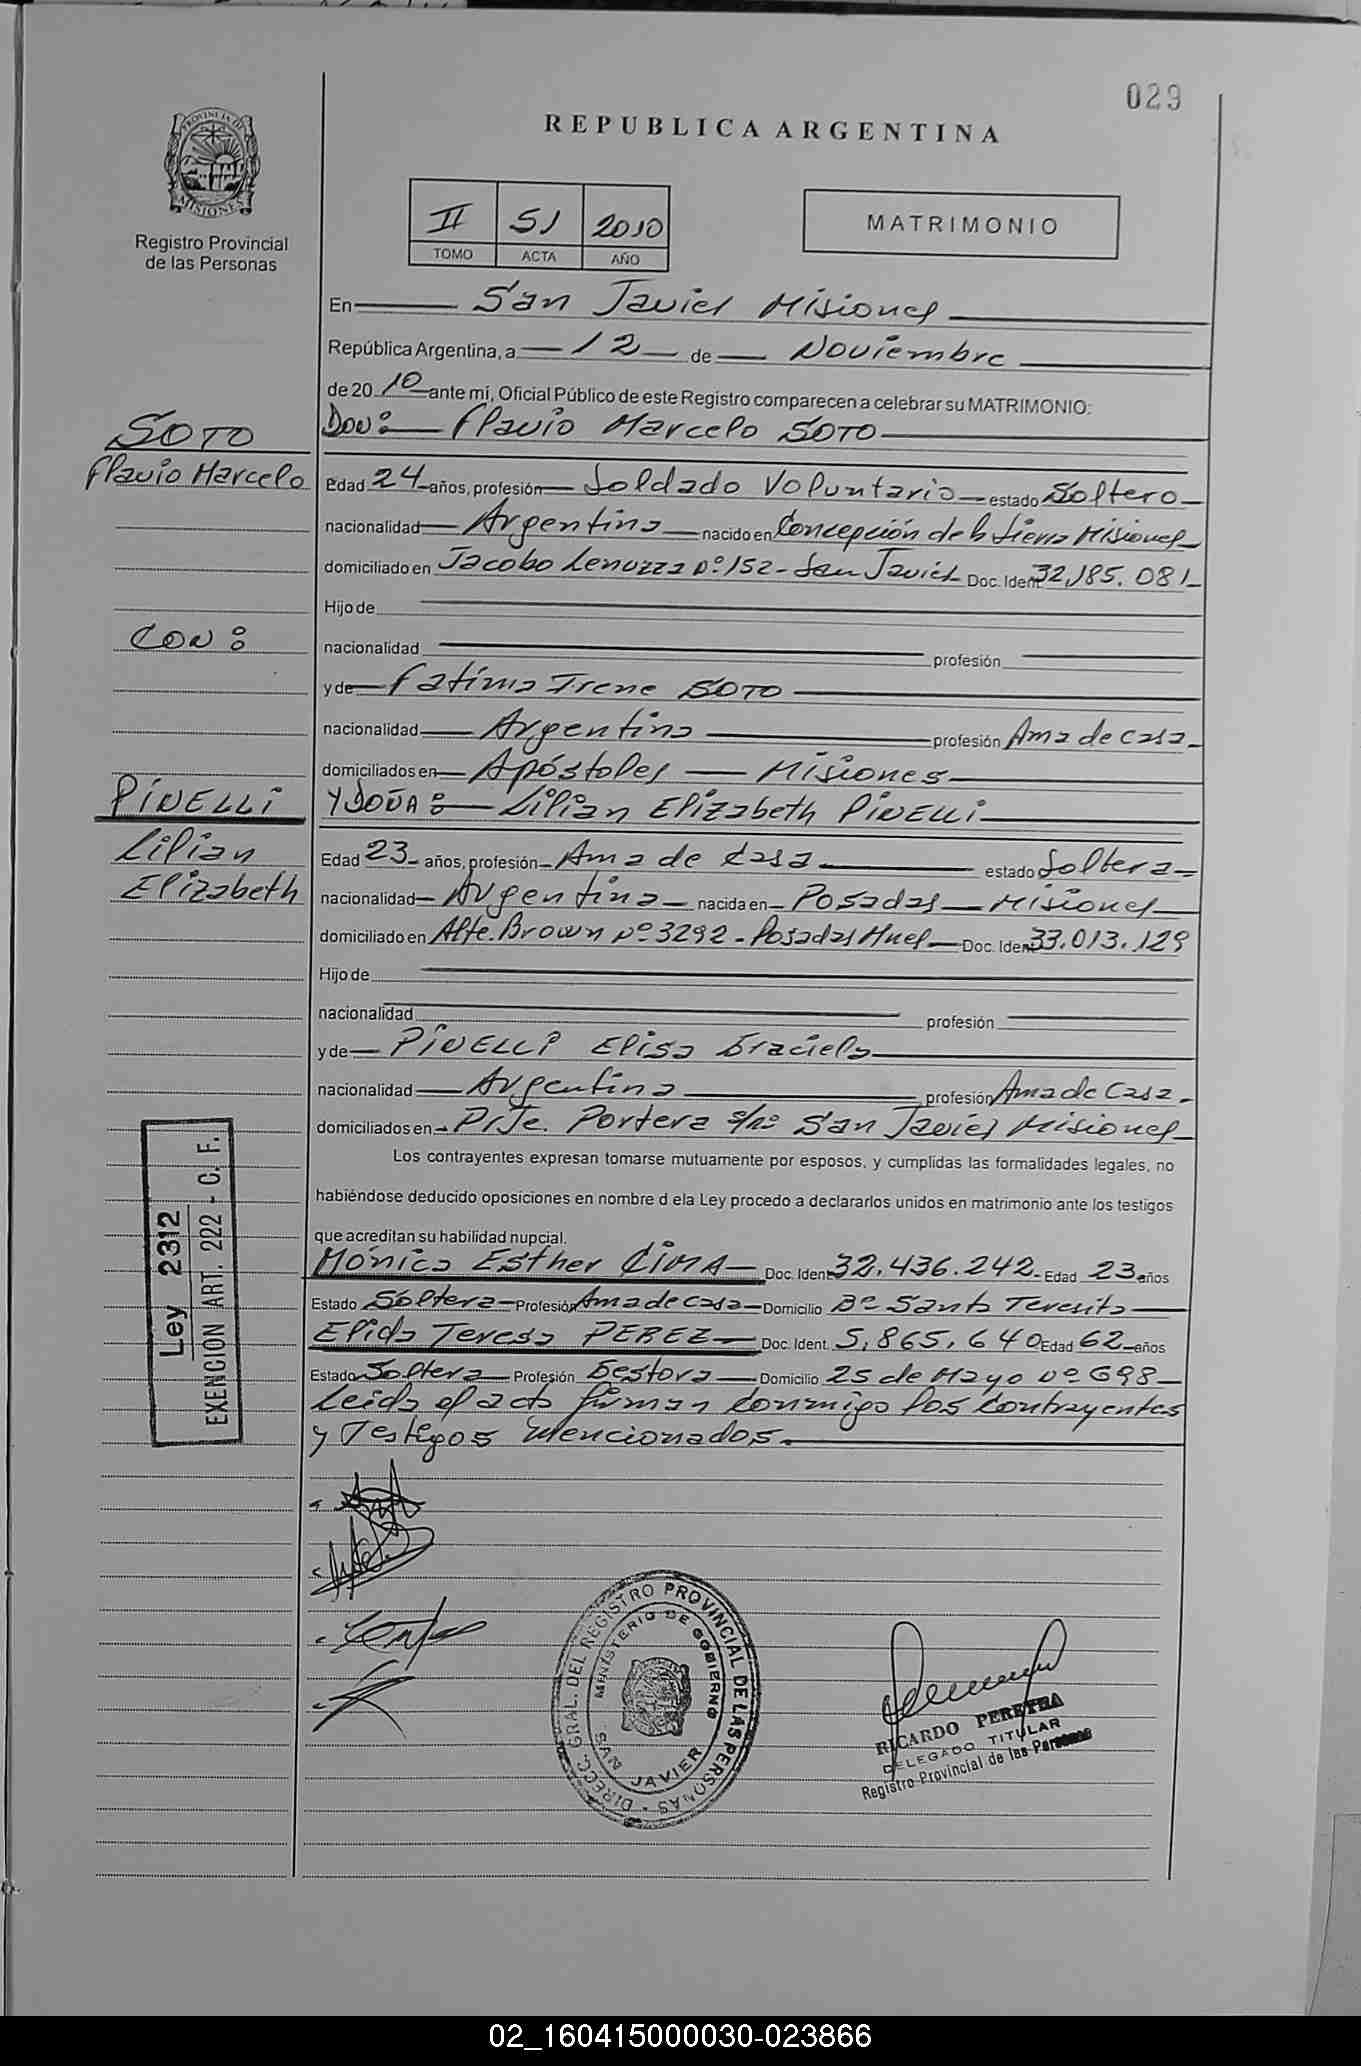 029
REPUBLICA ARGENTINA
PROVINCIA DE
MISIONES
Registro Provincial
de las Personas
II 51 2010
TOMO ACTA AÑO
MATRIMONIO
En San Javier Misiones
República Argentina, a 12 de Noviembre
de 20 10 ante mí, Oficial Público de este Registro comparecen a celebrar su MATRIMONIO:
SOTO
Don: Flavio Marcelo SOTO
Flavio Marcelo
Edad 24 años, profesión Soldado Voluntario estado Soltero
nacionalidad Argentina nacido en Concepción de la Sierra Misiones
domiciliado en Jacobo Lenuzza Nº 152 - San Javier Doc. Ident 32.185.081
Hijo de
CON:
nacionalidad profesión
y de Fatima Irene SOTO
nacionalidad Argentina profesión Ama de casa
domiciliados en Apóstoles Misiones
PINELLI
Y DOÑA: Lilian Elizabeth PINELLI
Lilian
Edad 23 años, profesión Ama de Casa estado Soltera
Elizabeth
nacionalidad Argentina nacida en Posadas Misiones
domiciliado en Alte. Brown Nº 3292 - Posadas Mnes Doc. Ident 33.013.129
Hijo de
nacionalidad profesión
y de PINELLI Elisa Graciela
nacionalidad Argentina profesión Ama de Casa
domiciliados en Pje. Portera s/nº San Javier Misiones
Los contrayentes expresan tomarse mutuamente por esposos, y cumplidas las formalidades legales, no
habiéndose deducido oposiciones en nombre d ela Ley procedo a declararlos unidos en matrimonio ante los testigos
que acreditan su habilidad nupcial.
Mónica Esther CIMA Doc. Ident 32.436.242 Edad 23 años
Estado Soltera Profesión Ama de casa Domicilio Bº Santa Teresita
Elida Teresa PEREZ Doc. Ident. 5.865.640 Edad 62 años
Estado Soltera Profesión Gestora Domicilio 25 de Mayo Nº 698
Leida el acta firman conmigo los contrayentes
y Testigos mencionados.
Ley 2312
EXENCION ART. 222 - C. F.
DIRECC. GRAL. DEL REGISTRO PROVINCIAL DE LAS PERSONAS
MINISTERIO DE GOBIERNO
SAN JAVIER
RICARDO PEREYRA
DELEGADO TITULAR
Registro Provincial de las Personas
02_160415000030-023866